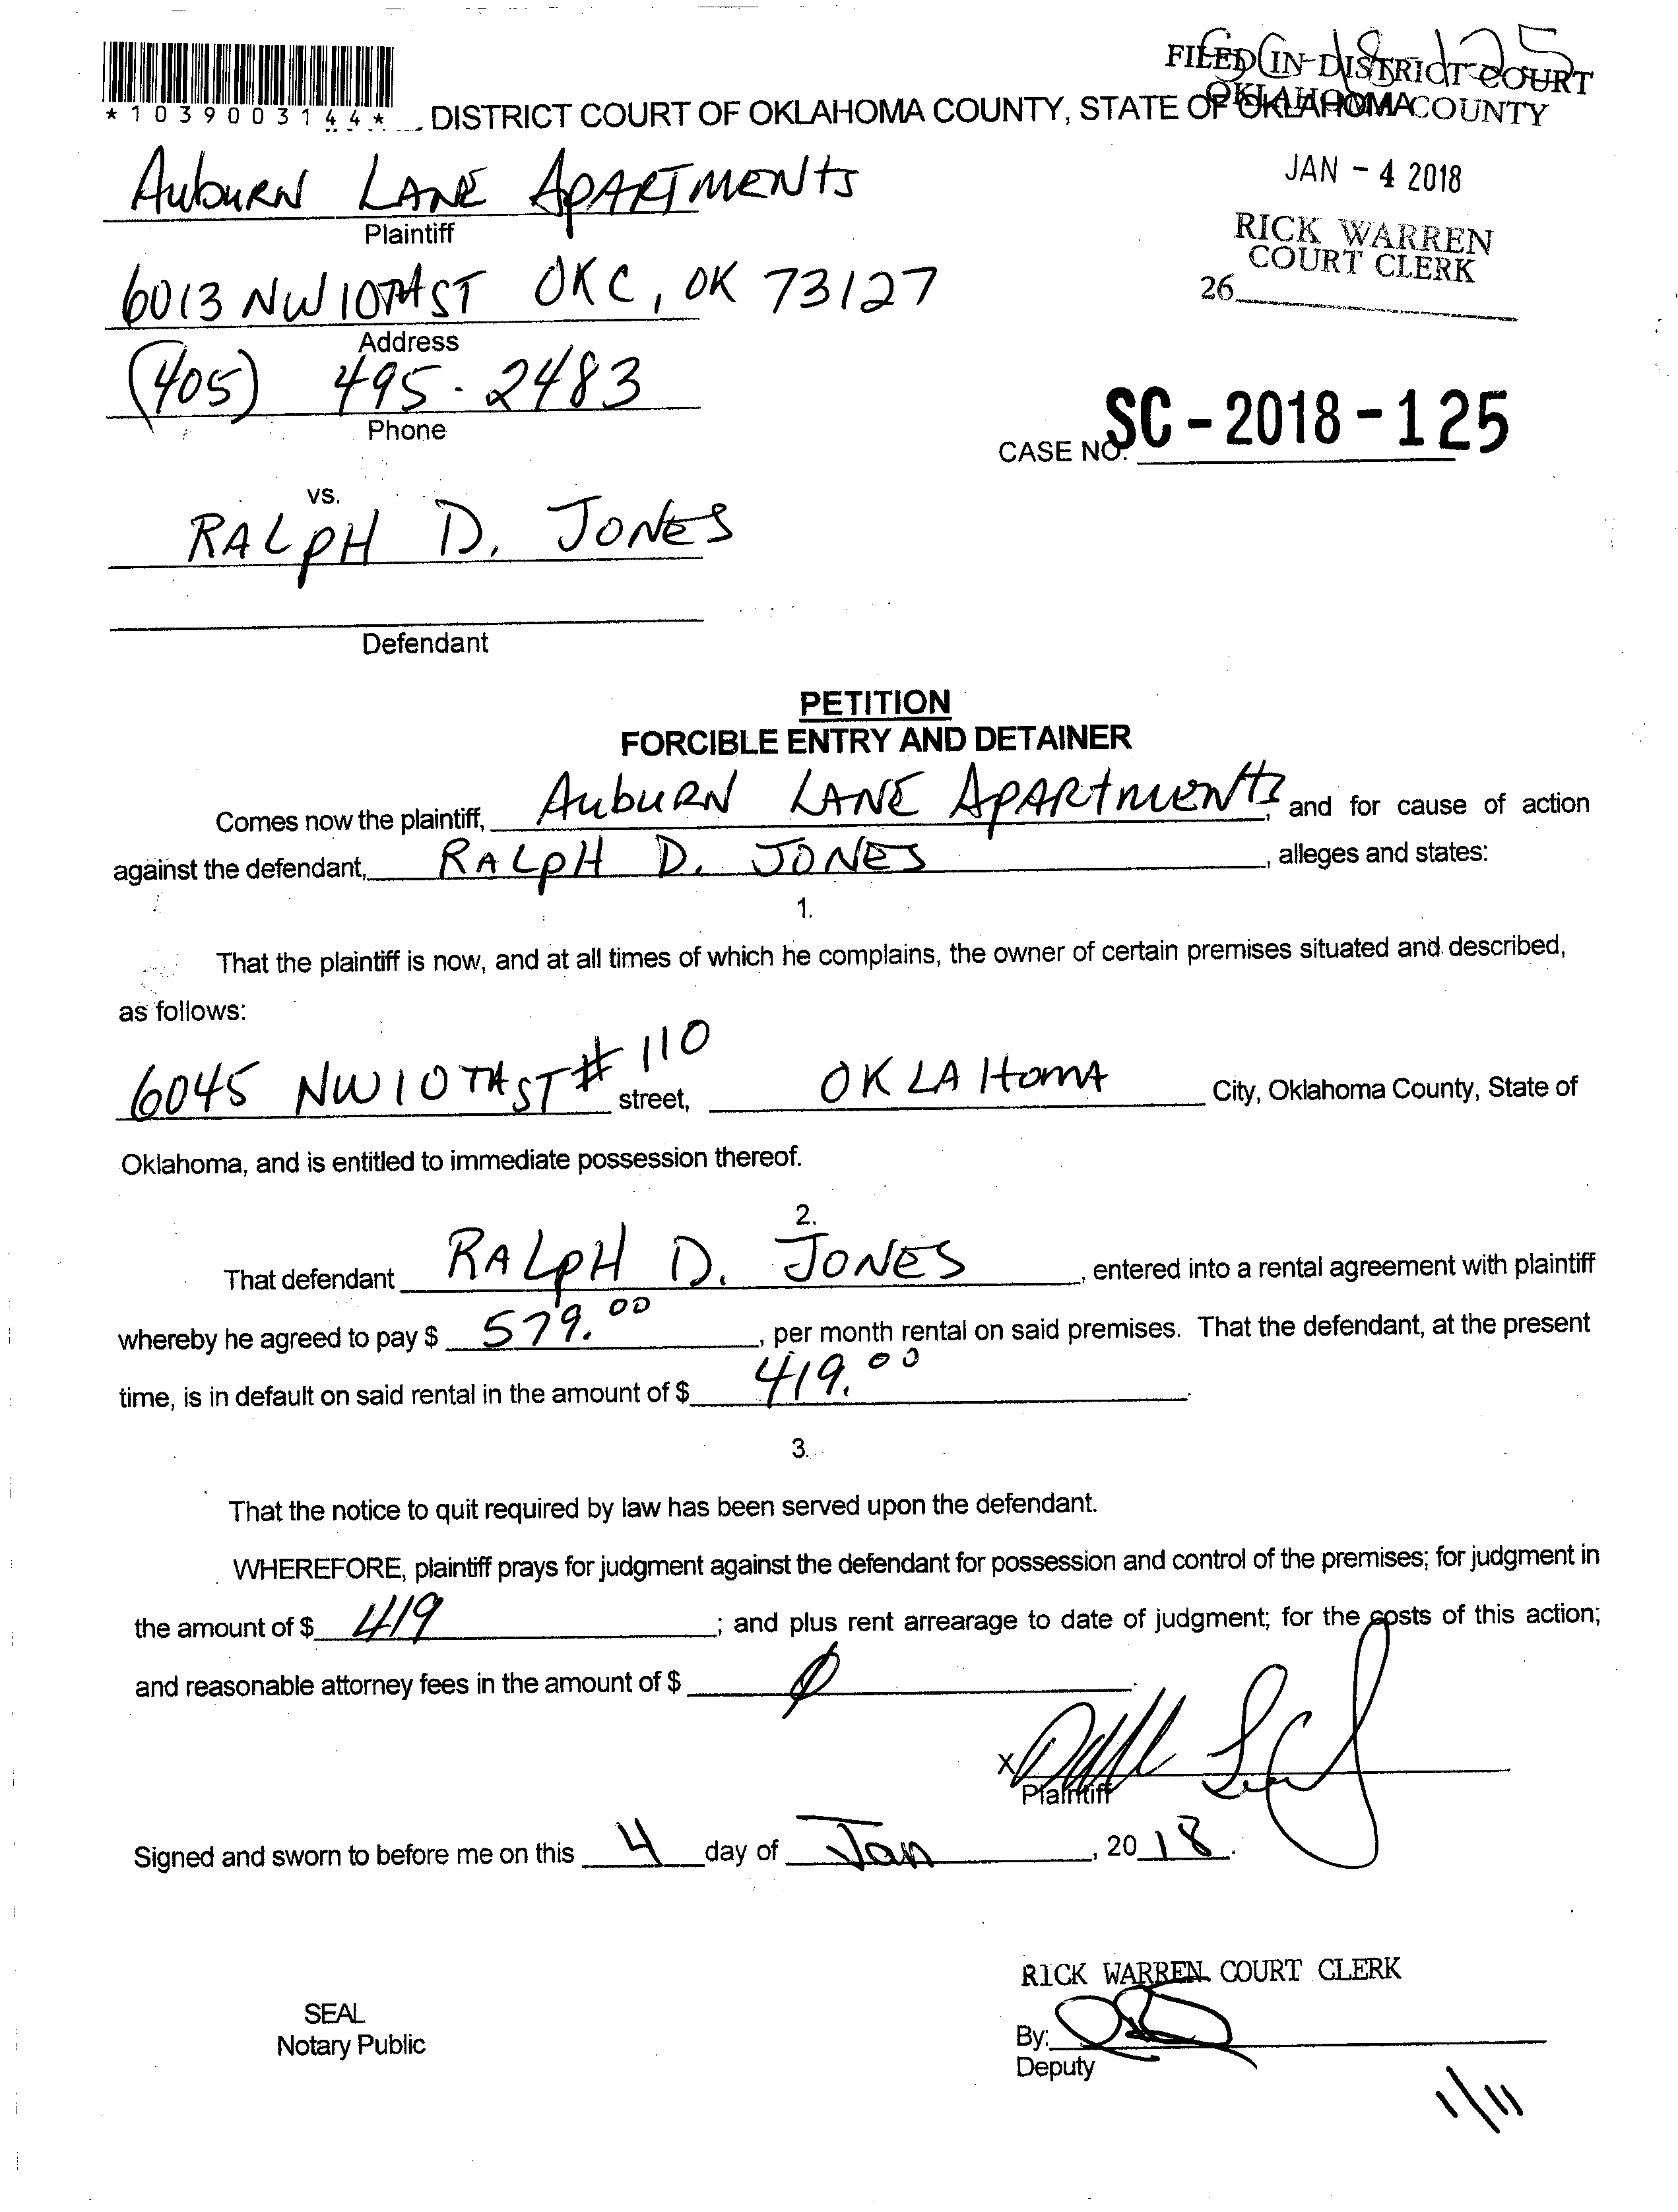 SC 18 125
FILED IN DISTRICT COURT
OKLAHOMA COUNTY
*1039003144*
DISTRICT COURT OF OKLAHOMA COUNTY, STATE OF OKLAHOMA
JAN - 4 2018
AubuRN LANE APARTMENTS
Plaintiff
RICK WARREN
COURT CLERK
26
6013 NW 10TH ST OKC, OK 73127
Address
(405) 495-2483
Phone
CASE NO. SC - 2018 - 125
vs.
RALPH D. JONES
Defendant
PETITION
FORCIBLE ENTRY AND DETAINER
Comes now the plaintiff, AubuRN LANE APARtmENTS, and for cause of action
against the defendant, RALPH D. JONES, alleges and states:
1.
That the plaintiff is now, and at all times of which he complains, the owner of certain premises situated and described,
as follows:
6045 NW 10TH ST # 110 street, OKLAHomA City, Oklahoma County, State of
Oklahoma, and is entitled to immediate possession thereof.
2.
That defendant RALPH D. JONES, entered into a rental agreement with plaintiff
whereby he agreed to pay $ 579.00, per month rental on said premises. That the defendant, at the present
time, is in default on said rental in the amount of $ 419.00.
3.
That the notice to quit required by law has been served upon the defendant.
WHEREFORE, plaintiff prays for judgment against the defendant for possession and control of the premises; for judgment in
the amount of $ 419; and plus rent arrearage to date of judgment; for the costs of this action;
and reasonable attorney fees in the amount of $ ∅.
X
Plaintiff
Signed and sworn to before me on this 4 day of Jan, 2018.
RICK WARREN COURT CLERK
SEAL
Notary Public
By:
Deputy
1/11